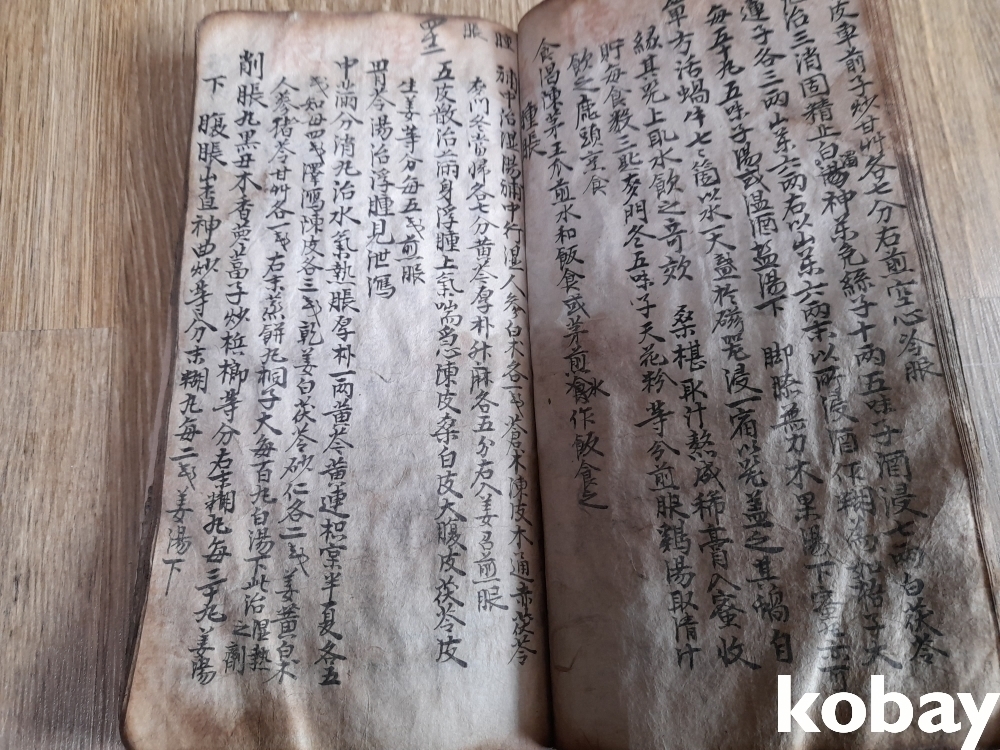 皮車前子炒甘艸各七分右煎空心冷服
治三消固精止白濁神禾兔絲子十兩五味子酒浸七兩白茯苓
蓮子各三兩山禾六兩右以山禾六兩末以所浸酒作糊爲丸梧子大
每五十九五味子湯或溫酒盐湯下 脚膝無力木果湯下
單方活蝸牛七箇以水一天盞於磁器浸一宿以光盖之其蝸自
緣其光上取水飲之奇效 桑椹取汁熬成稀膏入蜜收
貯每食数三匙 麥門冬五味子天花粉等分煎服 鷄湯取淸汁
飲之 鹿頭烹食
食濁陳茅王瓜煎水和飯食或茅煎水作飯食之
腫脹
補中治湿湯補中行湿人參白朮各一戔蒼朮陳皮木通赤茯苓
麥門冬當歸各七分黄芩厚朴升麻各五分右入姜召煎服
五皮散治滿身浮腫上氣喘急陳皮桑白皮大腹皮茯苓皮
生姜等分每五戔煎服
胃苓湯治浮腫見泄瀉
中滿分消丸治水氣熱脹厚朴一兩黄芩黄連枳宲半夏各五
戔知母四戔澤瀉陳皮各三戔乾姜白茯苓砂仁各二戔姜黄白朮
人參猪苓甘艸各一戔右末蒸餅丸梧子大每百丸白湯下此治湿熱
之劑
削脹丸黒丑木香葶藶子炒梹榔等分右末糊丸每三十九姜湯
下
腹脹山直神曲炒等分末糊丸每二戔姜湯下
腫脹
四十二
kobay